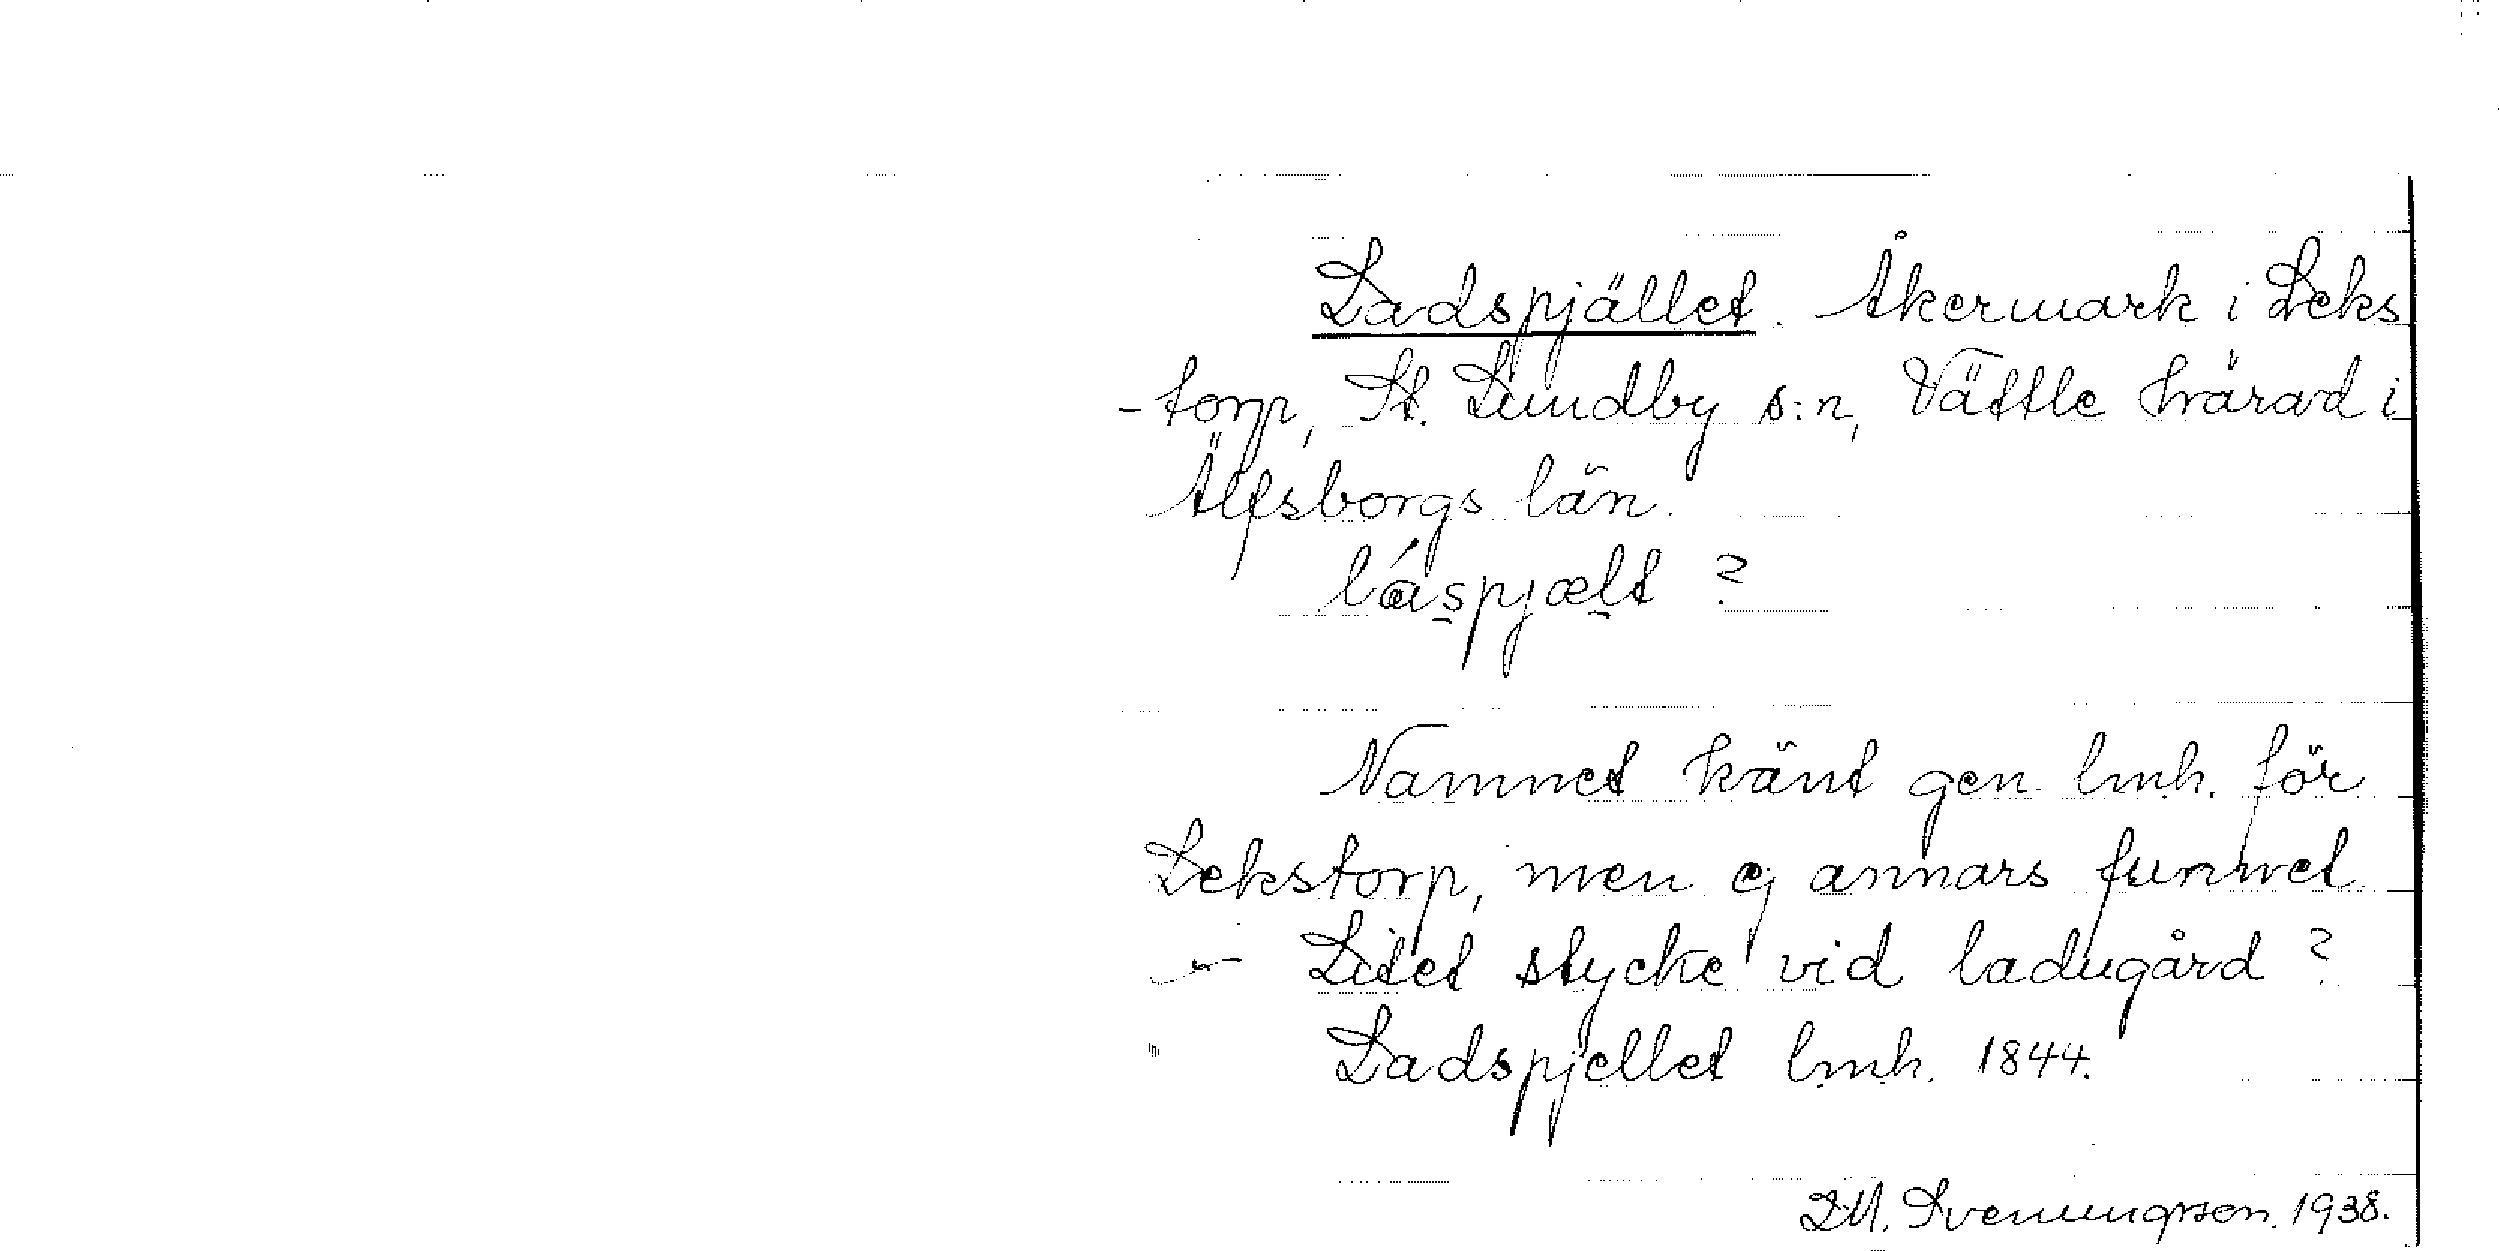 Ladspjället. Åkermark i Leks
-torp, St. Lundby s:n, Vättle härad i
Älfsborgs län.
Namnet känt gen lmh. för
Lekstorp, men ej annars funnet
- Litet stycke vid ladugård?
Ladspjellet lmh. 1844.
Svenungsson. 1938.